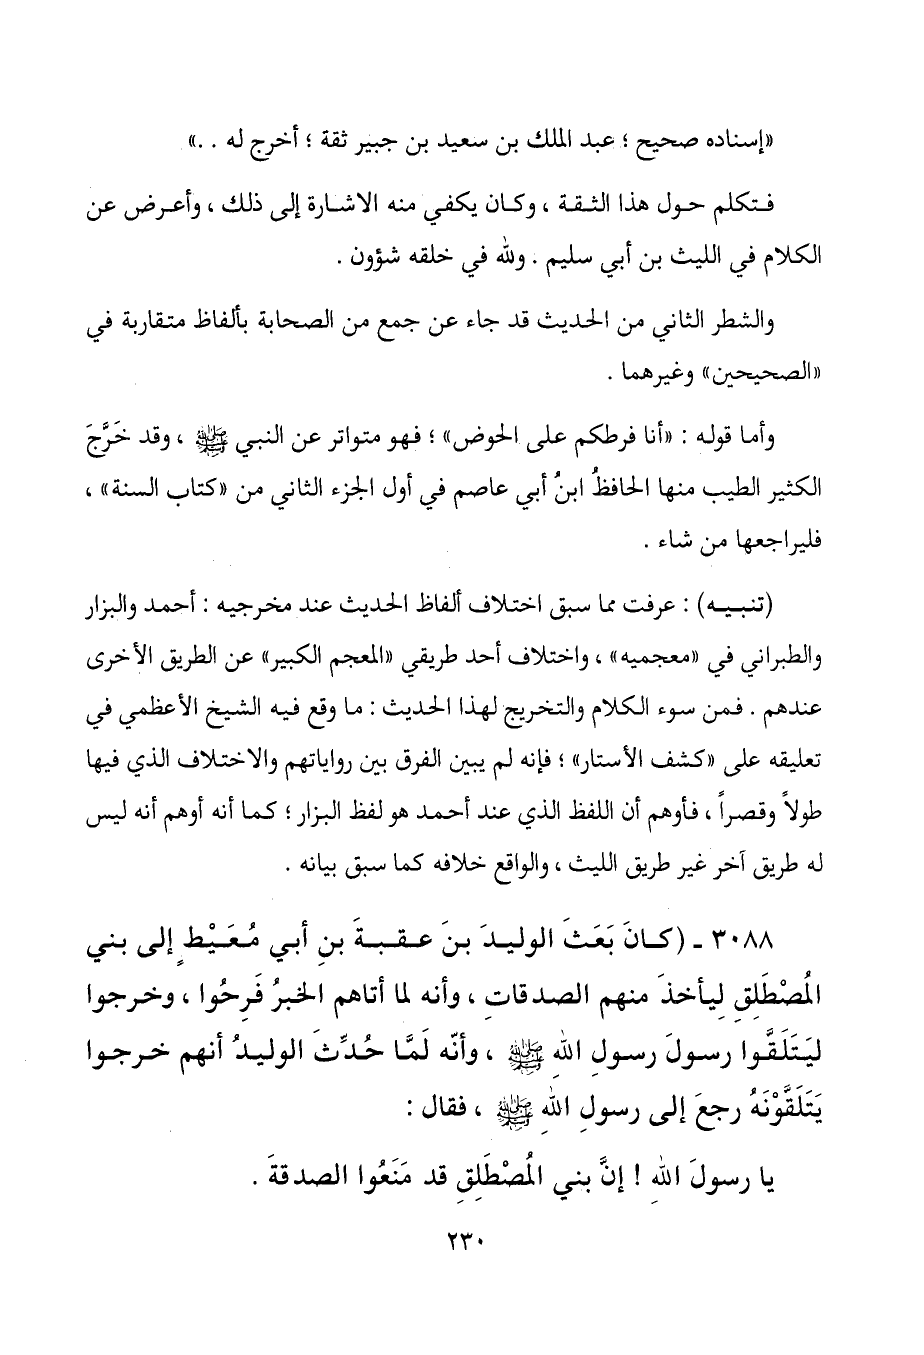 «إسناده صحيح ؛ عبد الملك بن سعيد بن جبير ثقة ؛ أخرج له . .»
فـتكلم حـول هذا الثـقـة ، وكـان يكفـي منه الاشـارة إلى ذلك ، وأعـرض عن
الكلام في الليث بن أبي سليم . ولله في خلقه شؤون .
والشطر الثاني من الحديث قد جاء عن جمع من الصحابة بألفاظ متقاربة في
«الصحيحين» وغيرهما .
وأما قوله : «أنا فرطكم على الحوض» ؛ فهو متواتر عن النبي ﷺ ، وقد خَرَّجَ
الكثير الطيب منها الحافظُ ابنُ أبي عاصم في أول الجزء الثاني من «كتاب السنة» ،
فليراجعها من شاء .
(تنبـيـه) : عرفت مما سبق اختلاف ألفاظ الحديث عند مخرجيه : أحمد والبزار
والطبراني في «معجميه» ، واختلاف أحد طريقي «المعجم الكبير» عن الطريق الأخرى
عندهم . فمن سوء الكلام والتخريج لهذا الحديث : ما وقع فيه الشيخ الأعظمي في
تعليقه على «كشف الأستار» ؛ فإنه لم يبين الفرق بين رواياتهم والاختلاف الذي فيها
طولاً وقصراً ، فأوهم أن اللفظ الذي عند أحمد هو لفظ البزار ؛ كما أنه أوهم أنه ليس
له طريق آخر غير طريق الليث ، والواقع خلافه كما سبق بيانه .
٣٠٨٨ ـ (كـانَ بَعَثَ الوليـدَ بـنَ عـقـبـةَ بنِ أبـي مُـعَـيْـطٍ إلى بـني
المُصْطَلِقِ ليأخذَ منهم الصدقاتِ ، وأنه لما أتاهم الخبرُ فَرِحُوا ، وخرجوا
ليَـتَلَقَّـوا رسولَ رسولِ اللهِ ﷺ ، وأنّه لَمَّا حُدِّثَ الوليـدُ أنهم خـرجـوا
يَتَلَقَّوْنَهُ رجعَ إلى رسولِ اللهِ ﷺ ، فقال :
يا رسولَ اللهِ ! إنَّ بني المُصْطَلِقِ قد مَنَعُوا الصدقةَ .
٢٣٠